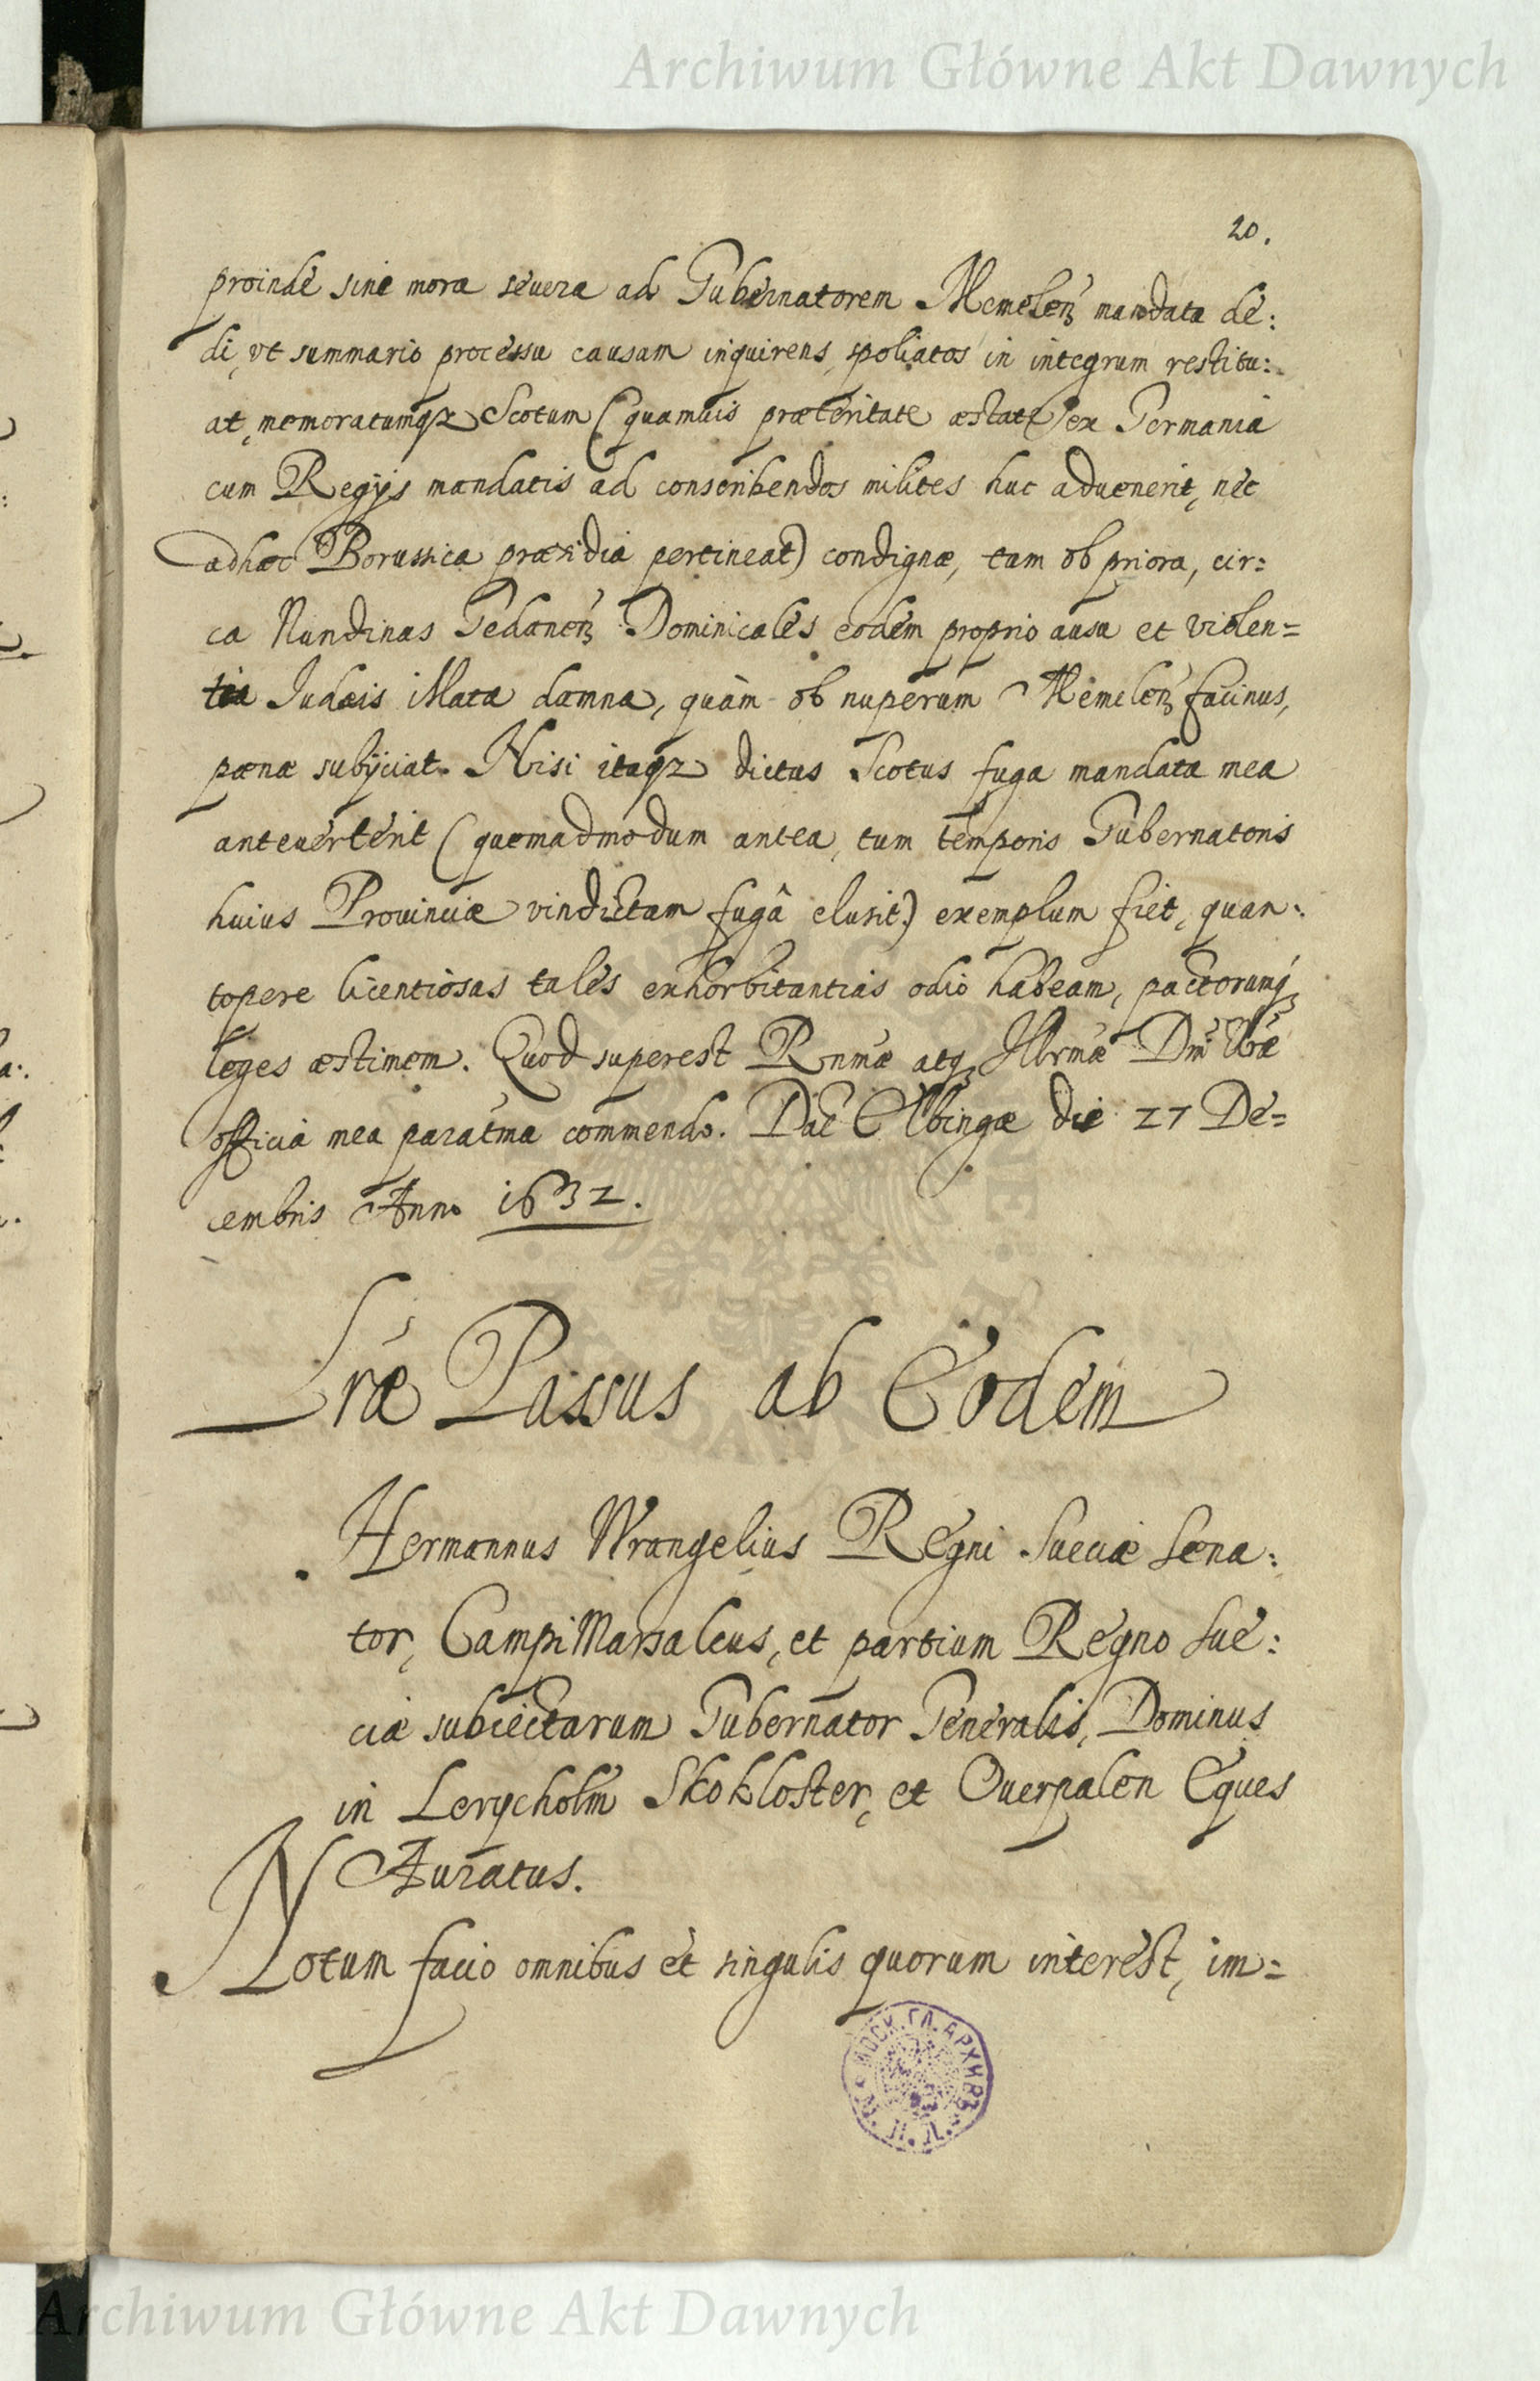 Archiwum Główne Akt Dawnych
20.
proinde sine mora severa ad Gubernatorem Memelenʒ mandata de:
di, vt summario processu causam inquirens, spoliatos in integrum restitu:
at, memoratumqʒ Scotum (quamuis præteritate æstate ex Germania
cum Regijs mandatis ad conscribendos milites huc aduenerit, nec
adhæc Borussica præsidia pertineat) condignæ, tam ob priora, cir:
ca Nundinas Gedanenʒ Dominicales eodem proprio ausu et violen=
tia Judæis illata damna, quàm ob nuperum Memelenʒ facinus,
pœnæ subijciat. Nisi itaqʒ dictus Scotus fuga mandata mea
anteuerterit (quemadmodum antea, tum temporis Gubernatoris
huius Prouinciæ vindictam fugâ elusit) exemplum fiet, quan:
topere licentiosas tales exhorbitantias odio habeam, pactorumqʒ
leges æstimem. Quod superest Rnmæ atqʒ Illrmæ Dni Vræ
officia mea paratma commendo. Dat Elbingæ die 27 De=
cembris Anno 1632.
Lræ Passus ab Eodem
Hermannus Wrangelius Regni Sueciæ Sena:
tor, Campi Marsalcus, et partium Regno Sue:
ciæ subiectarum Gubernator Generalis, Dominus
in Lerycholm Skokloster, et Overpalen Eques
Auratus.
Notum facio omnibus et singulis quorum interest, im=
МОСК. ГЛ. АРХИВЪ
Archiwum Główne Akt Dawnych